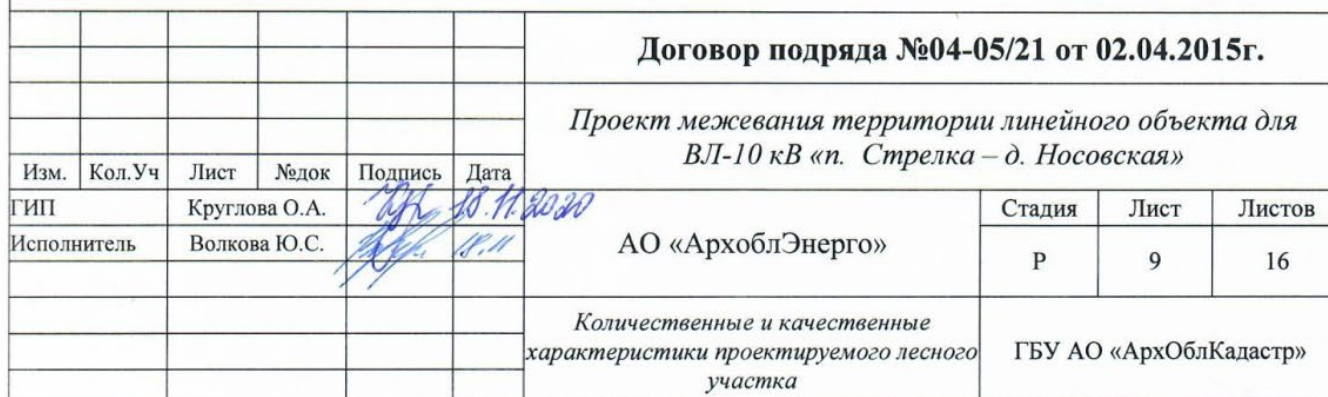 Договор подряда №04-05/21 от 02.04.2015г.
Проект межевания территории линейного объекта для
ВЛ-10 кВ «п. Стрелка – д. Носовская»
Изм. Кол.Уч Лист №док Подпись Дата
ГИП Круглова О.А. 18.11.2020
Исполнитель Волкова Ю.С. 18.11
АО «АрхоблЭнерго»
Стадия Лист Листов
Р 9 16
Количественные и качественные
характеристики проектируемого лесного
участка
ГБУ АО «АрхОблКадастр»